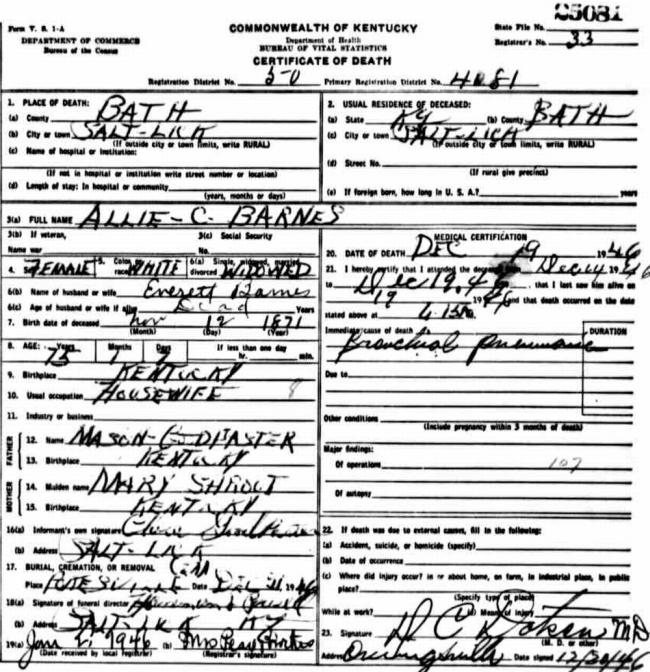 25081
Form V. S. 1-A
DEPARTMENT OF COMMERCE
Bureau of the Census
COMMONWEALTH OF KENTUCKY
Department of Health
BUREAU OF VITAL STATISTICS
CERTIFICATE OF DEATH
State File No.
Registrar's No. 33
Registration District No. 50 Primary Registration District No. 4081
1. PLACE OF DEATH:
(a) County BATH
(b) City or town SALT-LICK
(If outside city or town limits, write RURAL)
(c) Name of hospital or institution:
(If not in hospital or institution write street number or location)
(d) Length of stay: In hospital or community
(years, months or days)
2. USUAL RESIDENCE OF DECEASED:
(a) State KY (b) County BATH
(c) City or town SALT-LICK
(If outside city or town limits, write RURAL)
(d) Street No.
(If rural give precinct)
(e) If foreign born, how long in U. S. A.? years
3(a) FULL NAME ALLIE-C. BARNES
3(b) If veteran,
Name war
3(c) Social Security
No.
4. Sex FEMALE 5. Color or race WHITE 6(a) Single, widowed, married, divorced WIDOWED
6(b) Name of husband or wife Everett Barnes
6(c) Age of husband or wife if alive Dead Years
7. Birth date of deceased Nov 12 1871
(Month) (Day) (Year)
8. AGE: Years Months Days If less than one day
75 1 7 hr. min.
9. Birthplace KENTUCKY
10. Usual occupation HOUSEWIFE 8
11. Industry or business
FATHER
12. Name MASON
13. Birthplace KENTUCKY
MOTHER
14. Maiden name MARY SHROUT
15. Birthplace KENTUCKY
16(a) Informant's own signature
(b) Address SALT-LICK
17. BURIAL, CREMATION, OR REMOVAL
Place Date Dec 1946
18(a) Signature of funeral director
(b) Address SALT LICK KY
19(a) Jan 1946 (b) Mrs
(Date received by local registrar) (Registrar's signature)
MEDICAL CERTIFICATION
20. DATE OF DEATH DEC 19 1946
21. I hereby certify that I attended the deceased from Dec 14 1946
to Dec 19, 46, that I last saw him alive on
19 1946 and that death occurred on the date
stated above at m.
Immediate cause of death Bronchial pneumonia
DURATION
Due to
Other conditions
(Include pregnancy within 3 months of death)
Major findings:
Of operations 107
Of autopsy
22. If death was due to external causes, fill in the following:
(a) Accident, suicide, or homicide (specify)
(b) Date of occurrence
(c) Where did injury occur? in or about home, on farm, in industrial place, in public
place?
(Specify type of place)
While at work? (d) Means of injury
23. Signature D C M D
(M. D. or other)
Address Owingsville Date signed 12/20/46